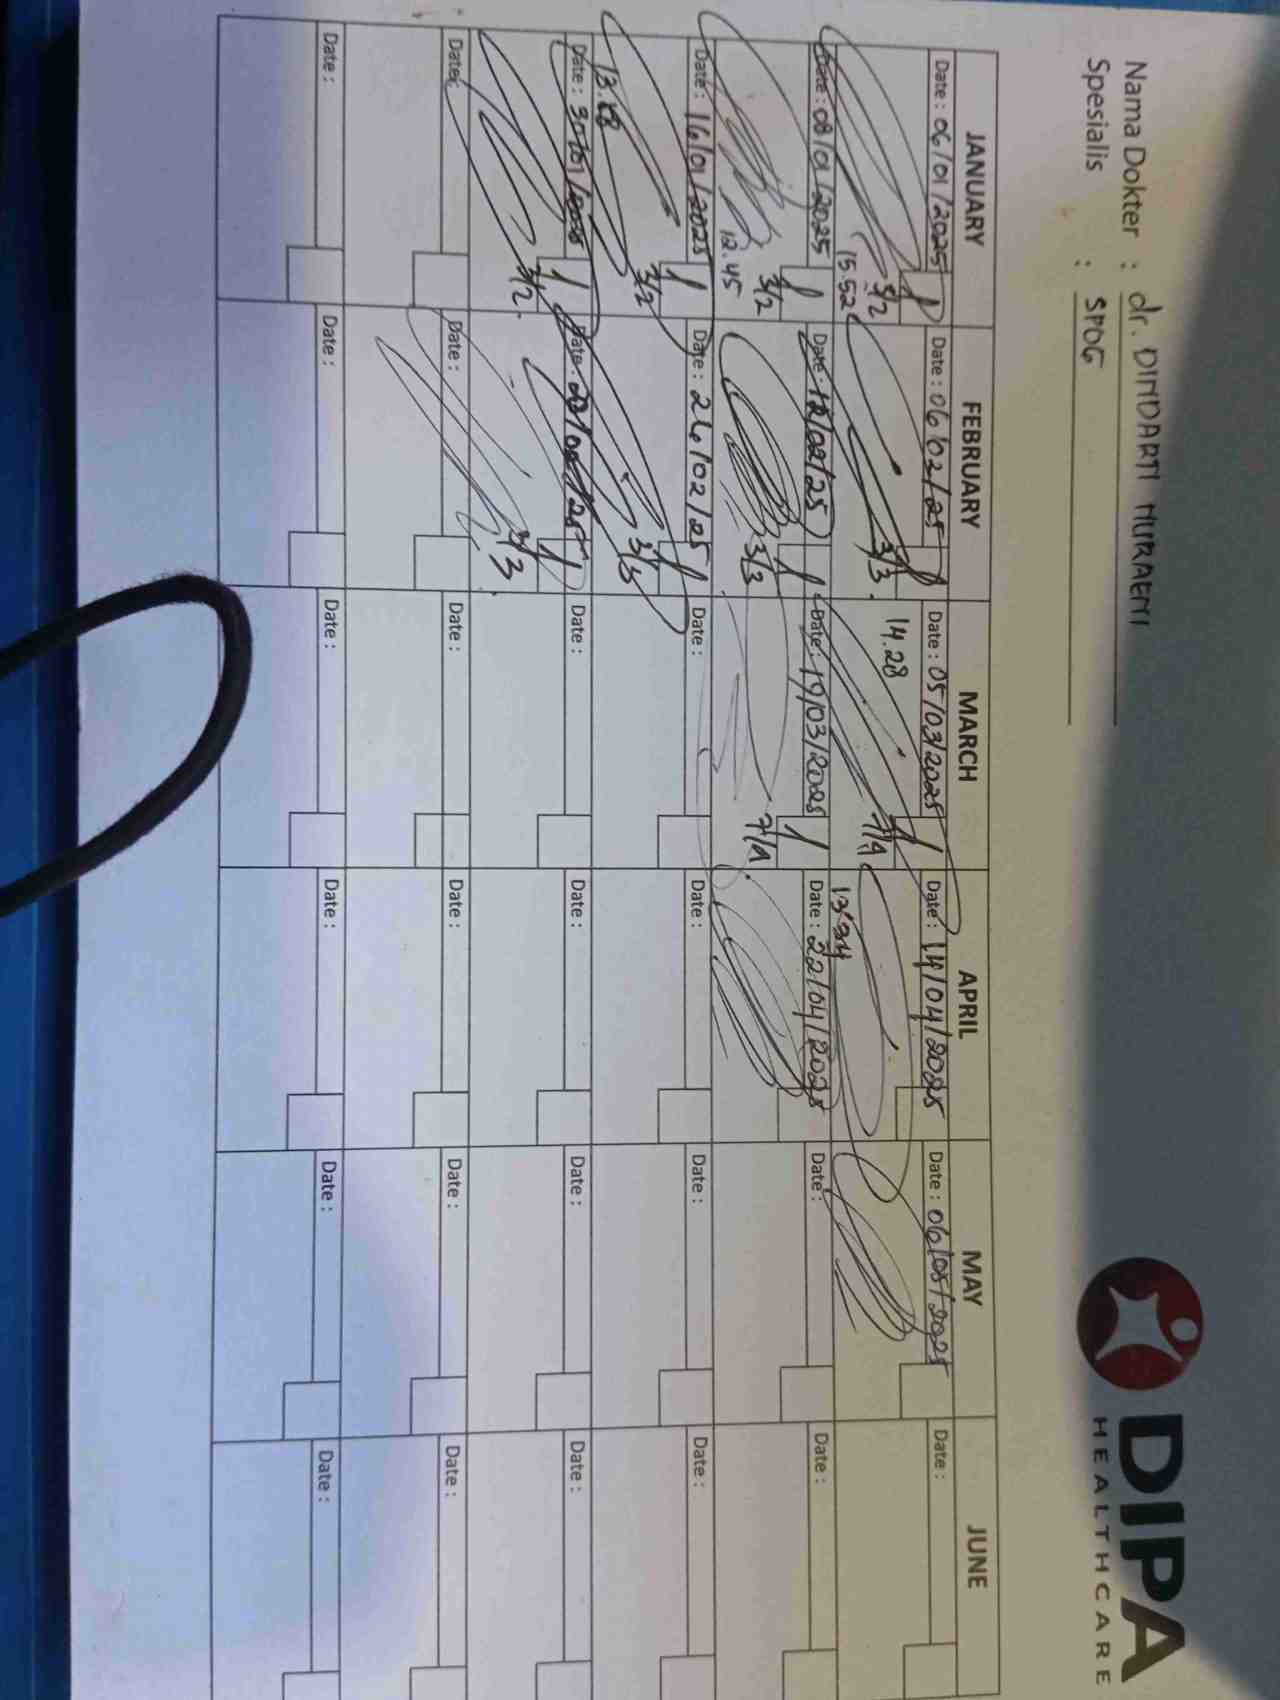 DIPA
HEALTHCARE
Nama Dokter : dr. DINDARTI NURAENI
Spesialis : SPOG
JANUARY FEBRUARY MARCH APRIL MAY JUNE
Date : 06/01/2025 Date : 06/02/25 Date : 05/03/2025 Date : 14/04/2025 Date : 06/05/2025 Date :
15.52 3/2 3/3 14.28 7/4
Date : 08/01/2025 Date : 12/02/25 Date : 19/03/2025 Date : 22/04/2025 Date : Date :
12.45 3/2 3/3 7/4
Date : 16/01/2025 Date : 26/02/25 Date : Date : Date : Date :
3/2 3/3
Date : 30/01/2025 Date : Date : Date : Date : Date :
3/2 3/3
Date : Date : Date : Date : Date : Date :
Date : Date : Date : Date : Date : Date :